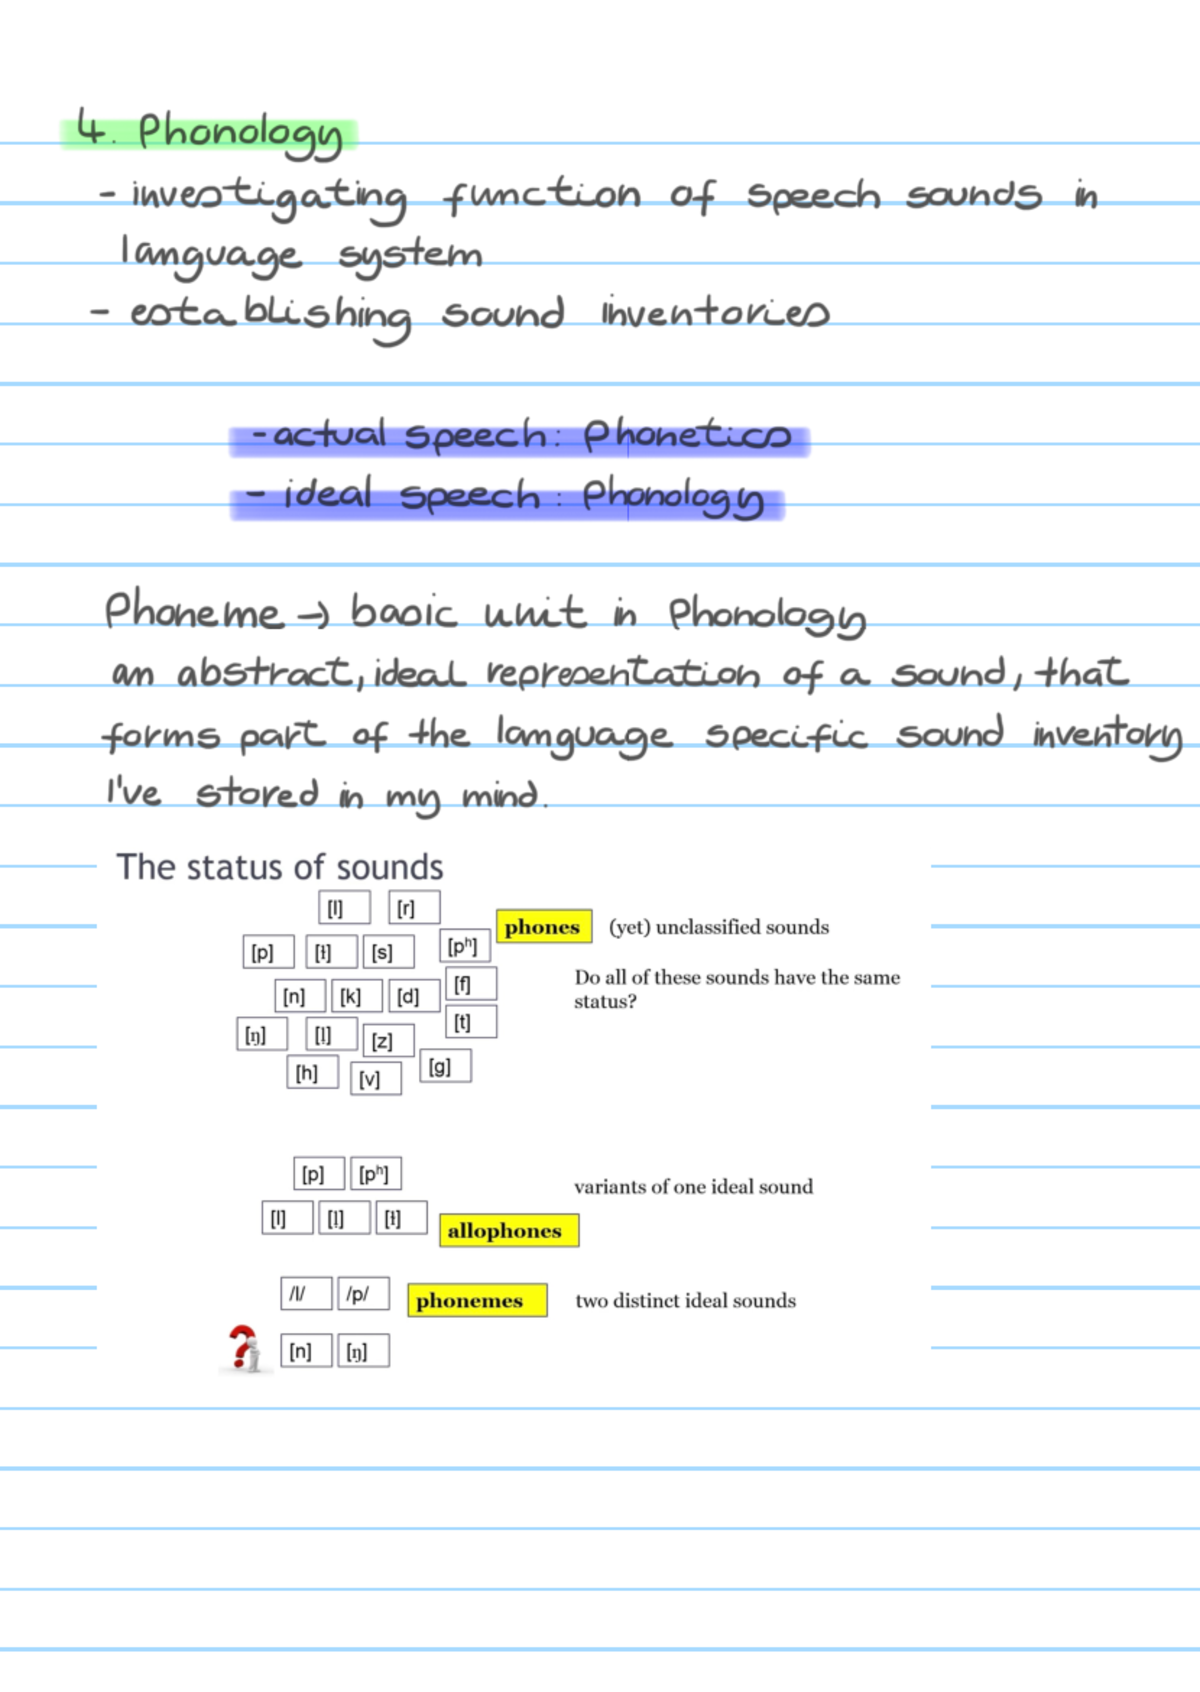 4. Phonology
- investigating function of speech sounds in
language system
- establishing sound inventories
- actual speech: Phonetics
- ideal speech: Phonology
Phoneme → basic unit in Phonology
an abstract, ideal representation of a sound, that
forms part of the language specific sound inventory
I've stored in my mind.
The status of sounds
[l] [r]
phones (yet) unclassified sounds
[p] [ɫ] [s] [pʰ]
Do all of these sounds have the same
status?
[n] [k] [d] [f]
[ŋ] [l̥] [z] [t]
[h] [v] [g]
[p] [pʰ]
variants of one ideal sound
[l] [l̥] [ɫ] allophones
/l/ /p/ phonemes two distinct ideal sounds
? [n] [ŋ]